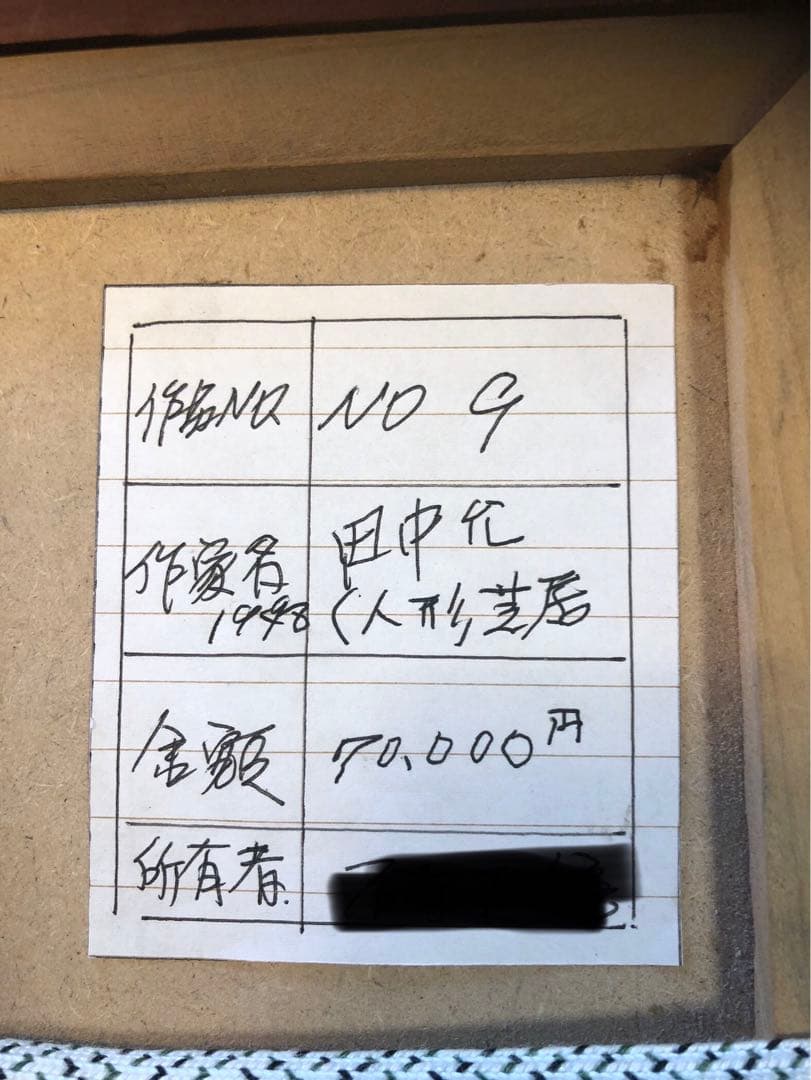 作名NO NO 9
作家名 田中
1948 (人形芝居
金額 70,000円
所有者